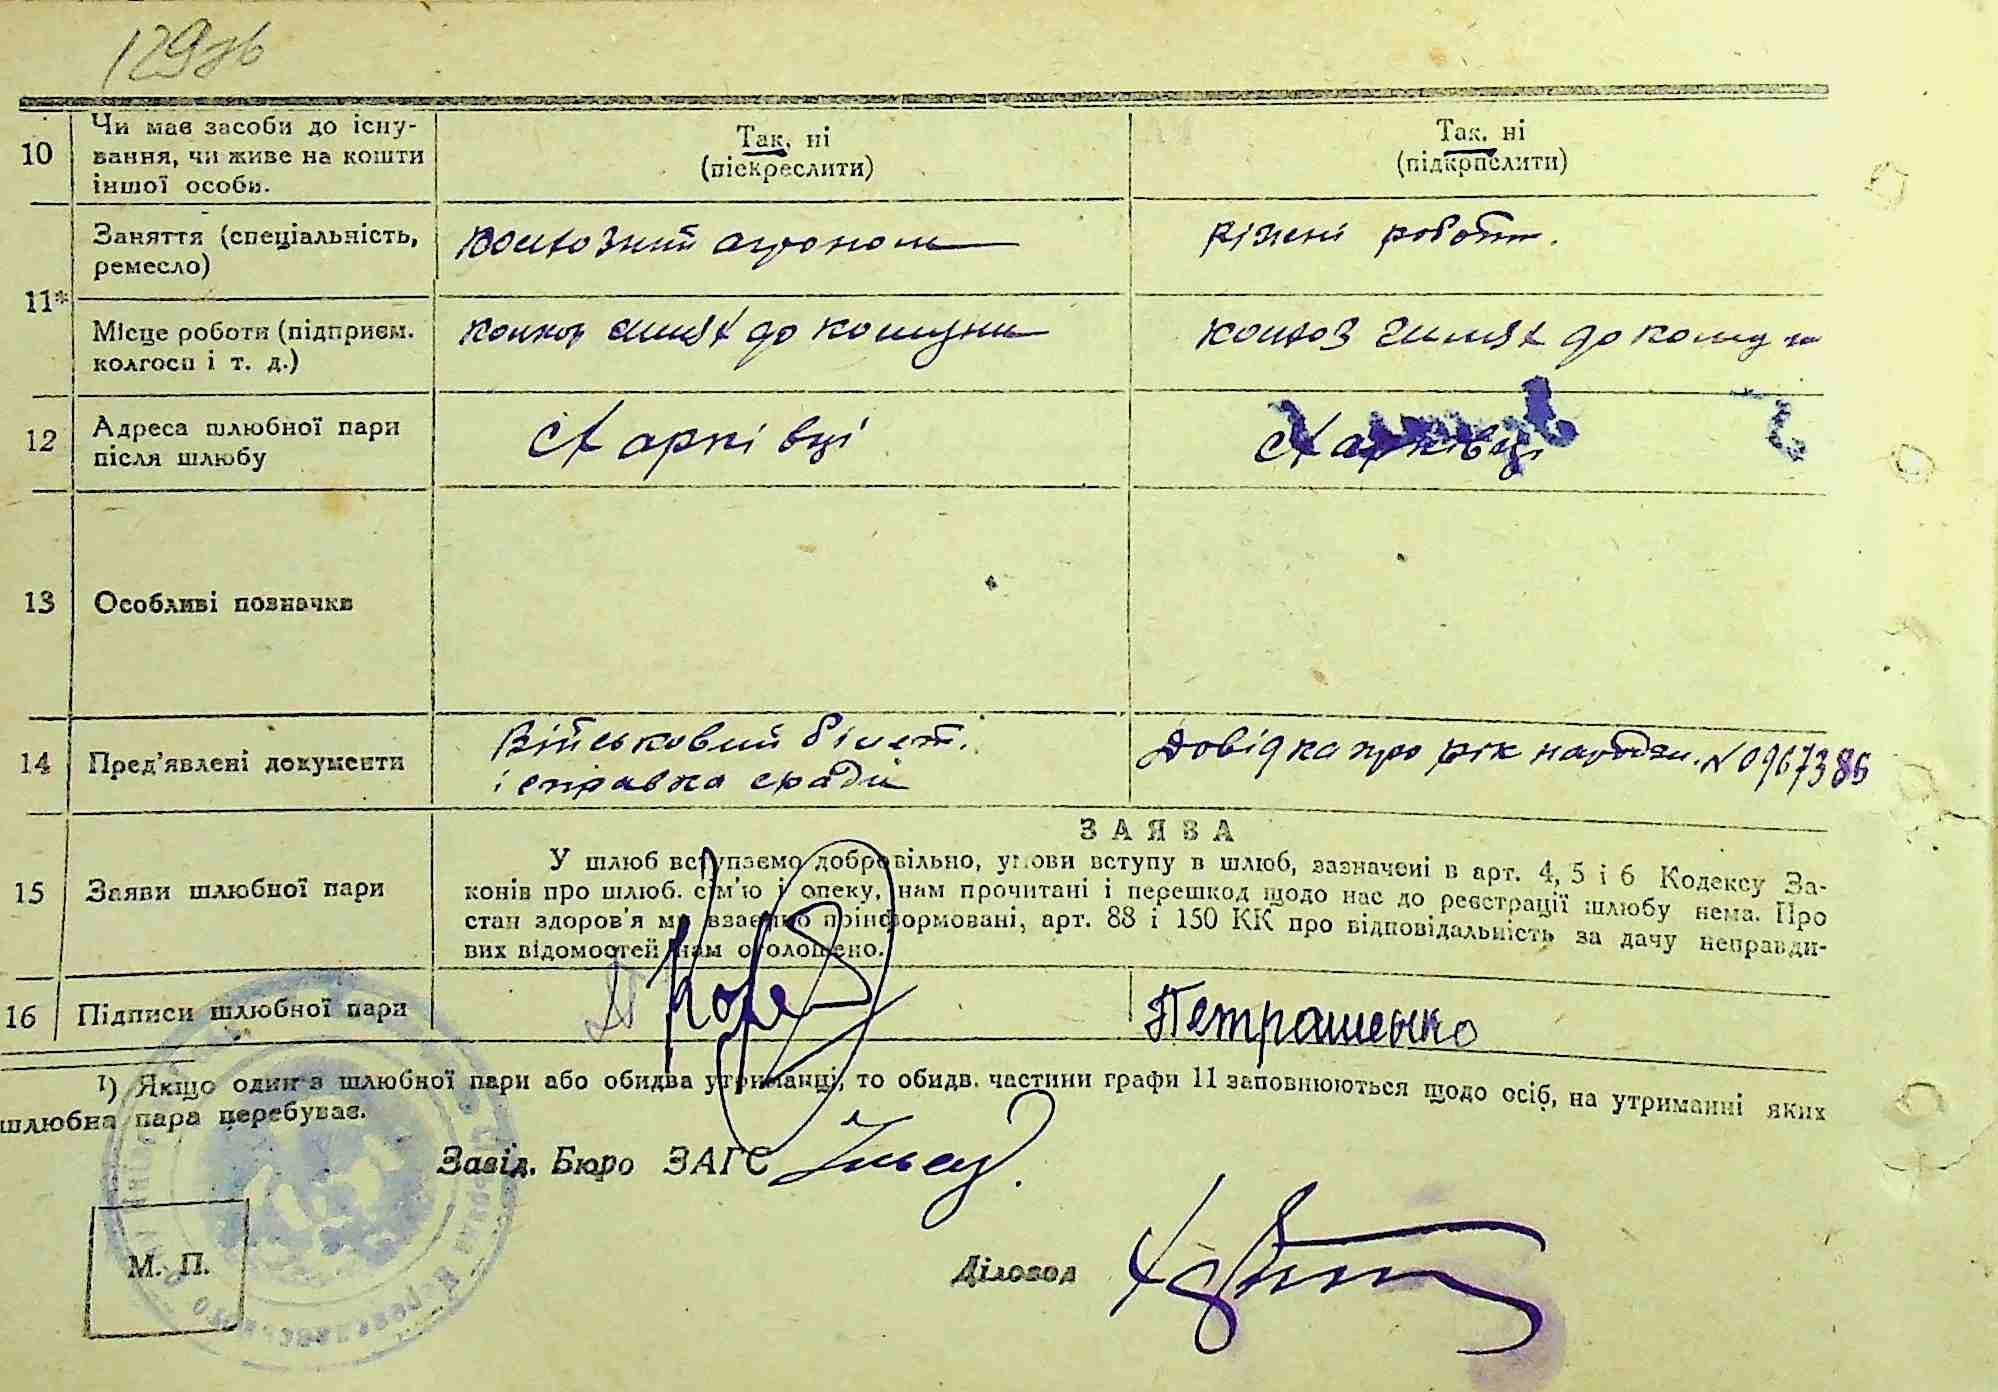 129зв
10 Чи має засоби до існу-
вання, чи живе на кошти
іншої особи.
Так, ні
(піскреслити)
Так, ні
(підкрпслити)
11*
Заняття (спеціальність,
ремесло)
колгозний агроном
ріжні роботи.
Місце роботи (підприєм.
колгосп і т. д.)
колгоз Шлях до комуни
колгоз Шлях до комуни
12 Адреса шлюбної пари
після шлюбу
с Харківці
с Харківці
13 Особливі позначки
14 Пред'явлені документи
Військовий білет.
і справка сради
Довідка про рік народжн. № 0967385
15 Заяви шлюбної пари
ЗАЯВА
У шлюб вступаємо добровільно, умови вступу в шлюб, зазначені в арт. 4, 5 і 6 Кодексу За-
конів про шлюб. сім'ю і опеку, нам прочитані і перешкод щодо нас до реєстрації шлюбу нема. Про
стан здоров'я ми взаємно поінформовані, арт. 88 і 150 КК про відповідальність за дачу неправди-
вих відомостей нам оголошено.
16 Підписи шлюбної пари
Петрашенко
1) Якщо один з шлюбної пари або обидва утриманці, то обидв. частини графи 11 заповнюються щодо осіб, на утриманні яких
шлюбна пара перебуває.
Завід. Бюро ЗАГС
М. П.
Діловод